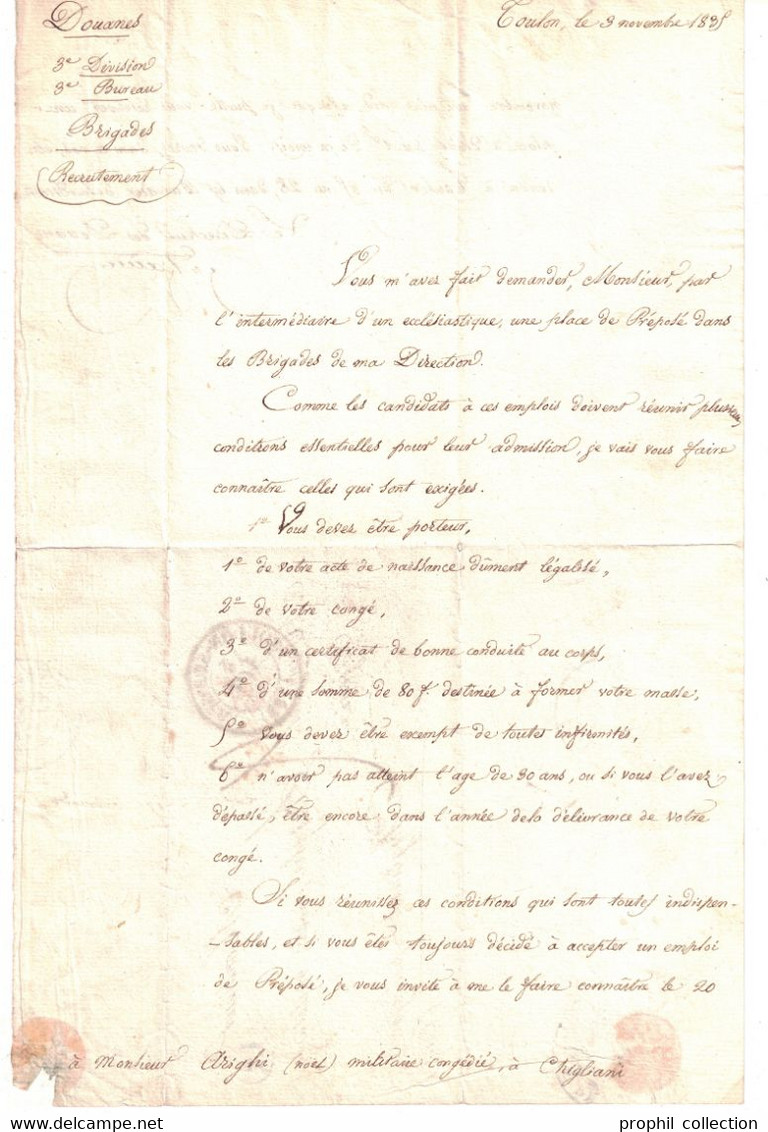 Douanes
Toulon, le 3 novembre 1835
3e Division
3e Bureau
Brigades
Recrutement
Vous m'avez fait demander, Monsieur, par
l'intermédiaire d'un ecclésiastique, une place de Préposé dans
les Brigades de ma Direction.
Comme les candidats à ces emplois doivent réunir plusieurs
conditions essentielles pour leur admission, je vais vous faire
connaître celles qui sont exigées.
1o Vous devez être porteur,
1o de votre acte de naissance dûment légalisé,
2o de votre congé,
3o d'un certificat de bonne conduite au corps,
4o d'une somme de 80 f. destinée à former votre masse,
5o Vous devez être exempt de toutes infirmités,
6o n'avoir pas atteint l'age de 30 ans, ou si vous l'avez
dépassé, être encore dans l'année de la délivrance de votre
congé.
Si vous réunissez ces conditions qui sont toutes indispen-
-sables, et si vous êtes toujours décidé à accepter un emploi
de Préposé, je vous invite à me le faire connaître le 20
à Monsieur Arighi (noël) militaire congédié, à Chigliani
prophil collection